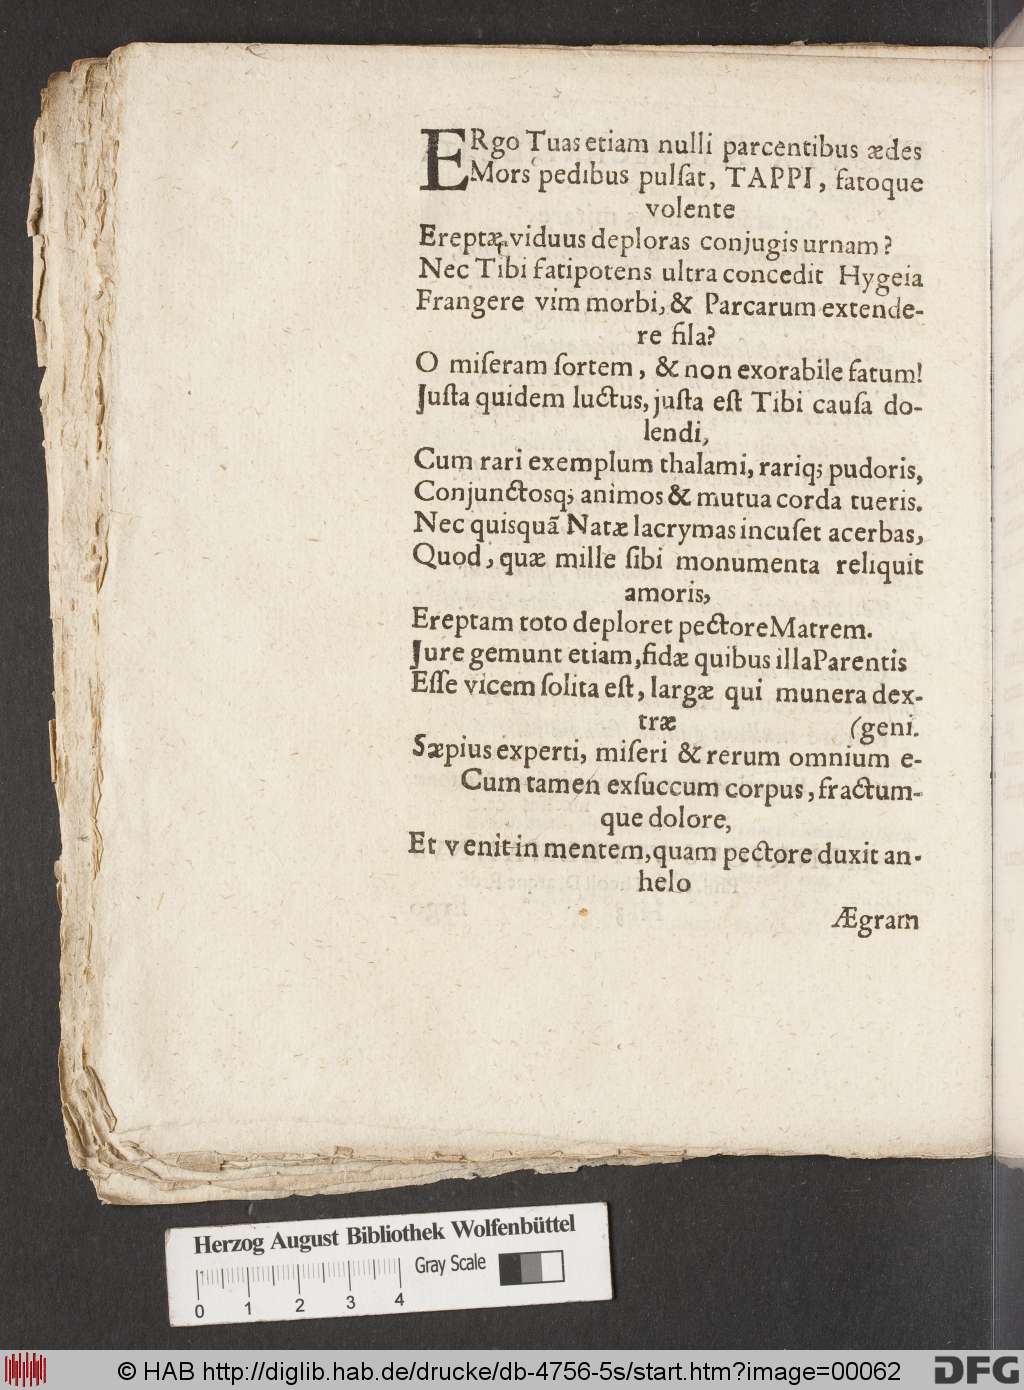 ERgo Tuas etiam nulli parcentibus ædes
Mors pedibus pulſat, TAPPI, fatoque
volente
Ereptæ viduus deploras conjugis urnam?
Nec Tibi fatipotens ultra concedit Hygeia
Frangere vim morbi, & Parcarum extende-
re fila?
O miſeram ſortem, & non exorabile fatum!
Juſta quidem luctus, juſta eſt Tibi cauſa do-
lendi,
Cum rari exemplum thalami, rariq; pudoris,
Conjunctosq; animos & mutua corda tueris.
Nec quisquã Natæ lacrymas incuſet acerbas,
Quod, quæ mille ſibi monumenta reliquit
amoris,
Ereptam toto deploret pectore Matrem.
Jure gemunt etiam, fidæ quibus illa Parentis
Eſſe vicem ſolita eſt, largæ qui munera dex-
træ (geni.
Sæpius experti, miſeri & rerum omnium e-
Cum tamen exſuccum corpus, fractum-
que dolore,
Et venit in mentem, quam pectore duxit an-
helo
Ægram
Herzog August Bibliothek Wolfenbüttel
Gray Scale
0 1 2 3 4
© HAB http://diglib.hab.de/drucke/db-4756-5s/start.htm?image=00062
DFG